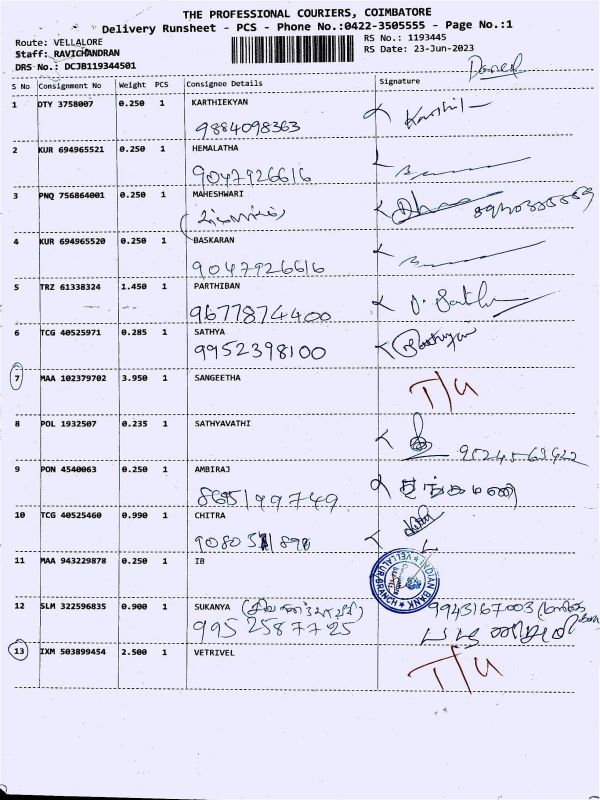 THE PROFESSIONAL COURIERS, COIMBATORE
Delivery Runsheet - PCS - Phone No.:0422-3505555 - Page No.:1
Route: VELLALORE
RS No.: 1193445
Staff: RAVICHANDRAN
RS Date: 23-Jun-2023
DRS No.: DCJB119344501
S No Consignment No Weight PCS Consignee Details Signature
1 DTY 3758007 0.250 1 KARTHIEKYAN
9884098363
2 KUR 694965521 0.250 1 HEMALATHA
9047926616
3 PNQ 756864001 0.250 1 MAHESHWARI
4 KUR 694965520 0.250 1 BASKARAN
9047926616
5 TRZ 61338324 1.450 1 PARTHIBAN
9677874400
6 TCG 40525971 0.285 1 SATHYA
9952398100
7 MAA 102379702 3.950 1 SANGEETHA T/U
8 POL 1932507 0.235 1 SATHYAVATHI
9 PON 4540063 0.250 1 AMBIRAJ
8695199749 தங்கமணி
10 TCG 40525460 0.990 1 CHITRA
11 MAA 943229878 0.250 1 IB
INDIAN BANK VELLALUR BRANCH
12 SLM 322596835 0.900 1 SUKANYA 9943167003
9952587725
13 IXM 503899454 2.500 1 VETRIVEL T/U